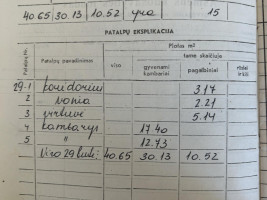 40.65 30.13 10.52 15
PATALPŲ EKSPLIKACIJA
Patalpų Nr.
Patalpų pavadinimas
Plotas m²
viso
tame skaičiuje
gyvenami kambariai
pagalbiniai
29-1 koridorius 3.17
2 vonia 2.21
3 virtuvė 5.14
4 kambarys 17.40
5 " 12.73
Viso 29 butui: 40.65 30.13 10.52